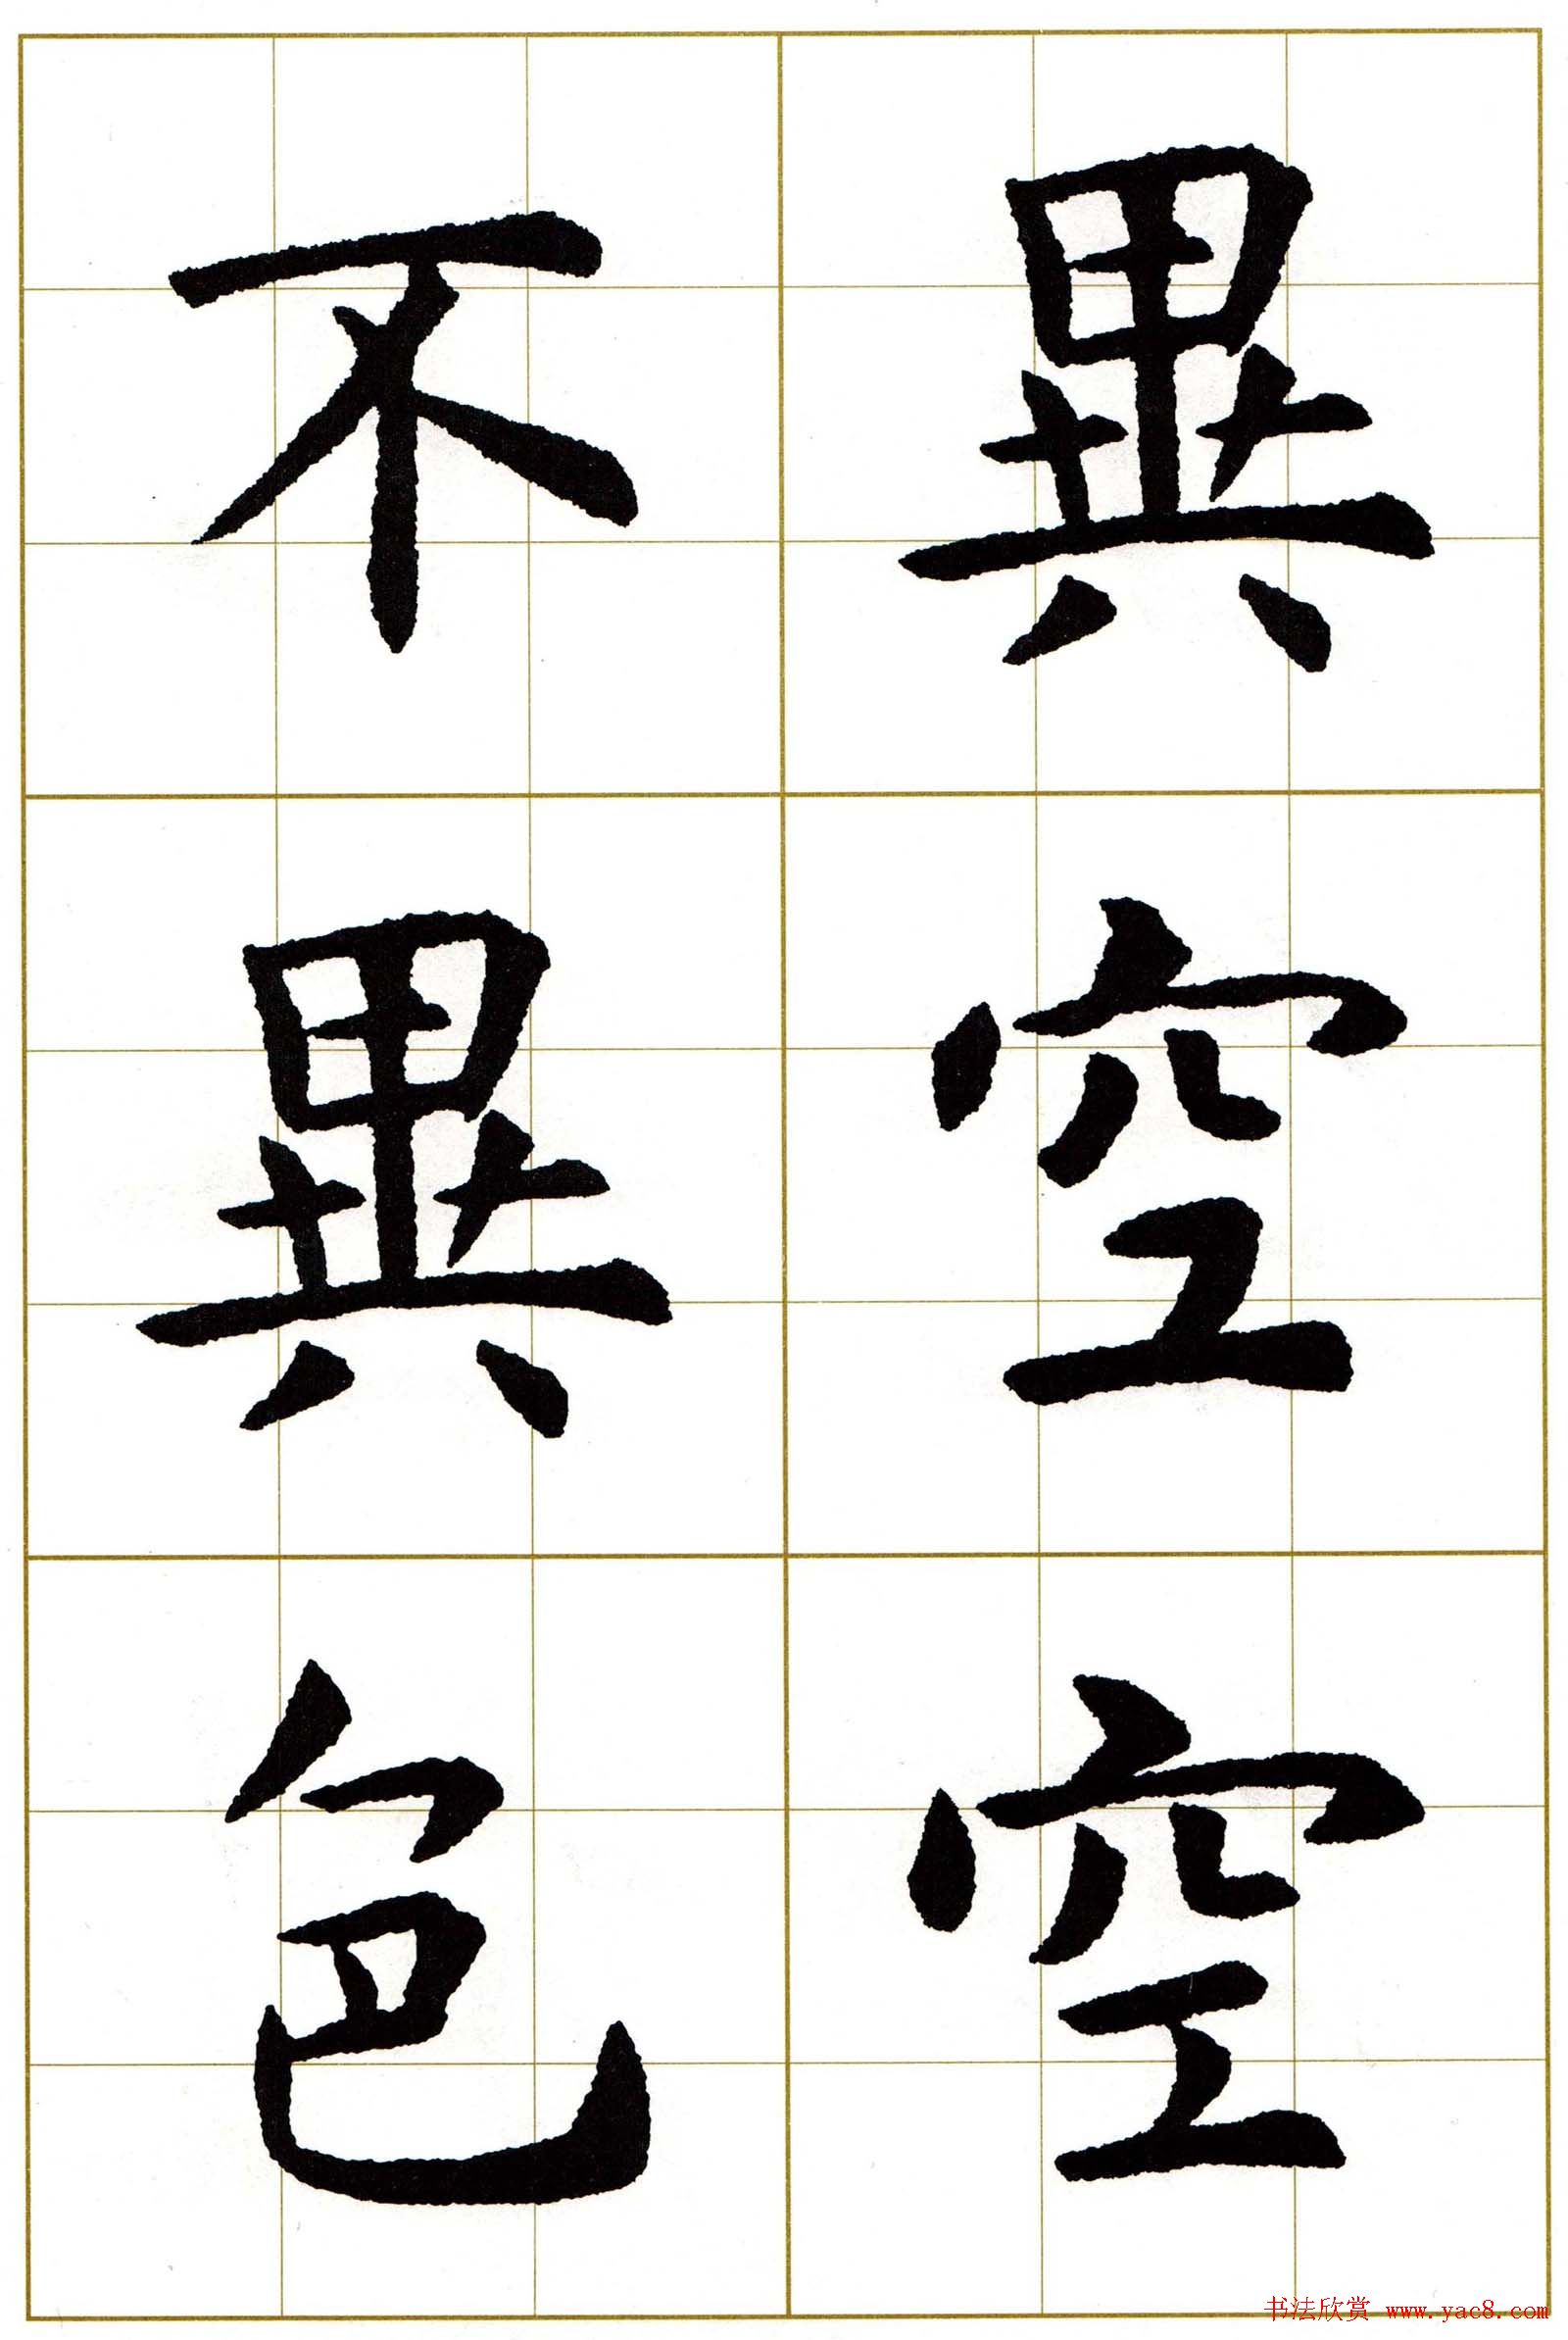 異空空
不異色
书法欣赏 www.yac8.com